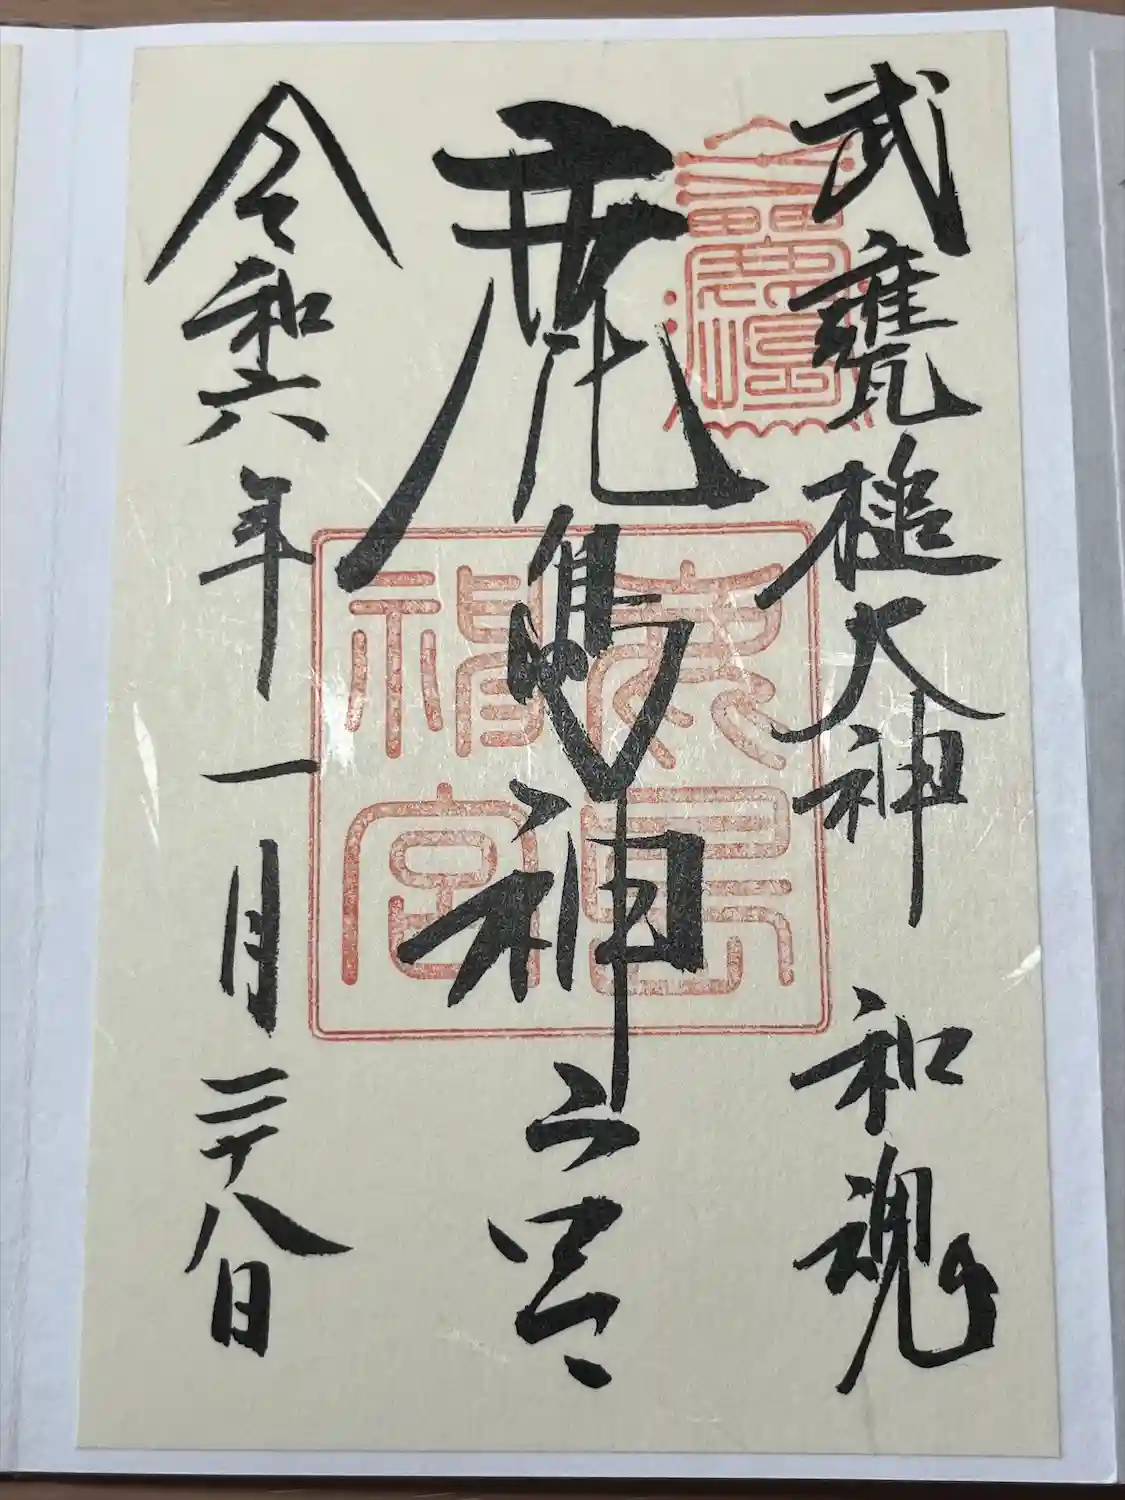 武甕槌大神 和魂
鹿嶋神宮
令和六年一月二十八日